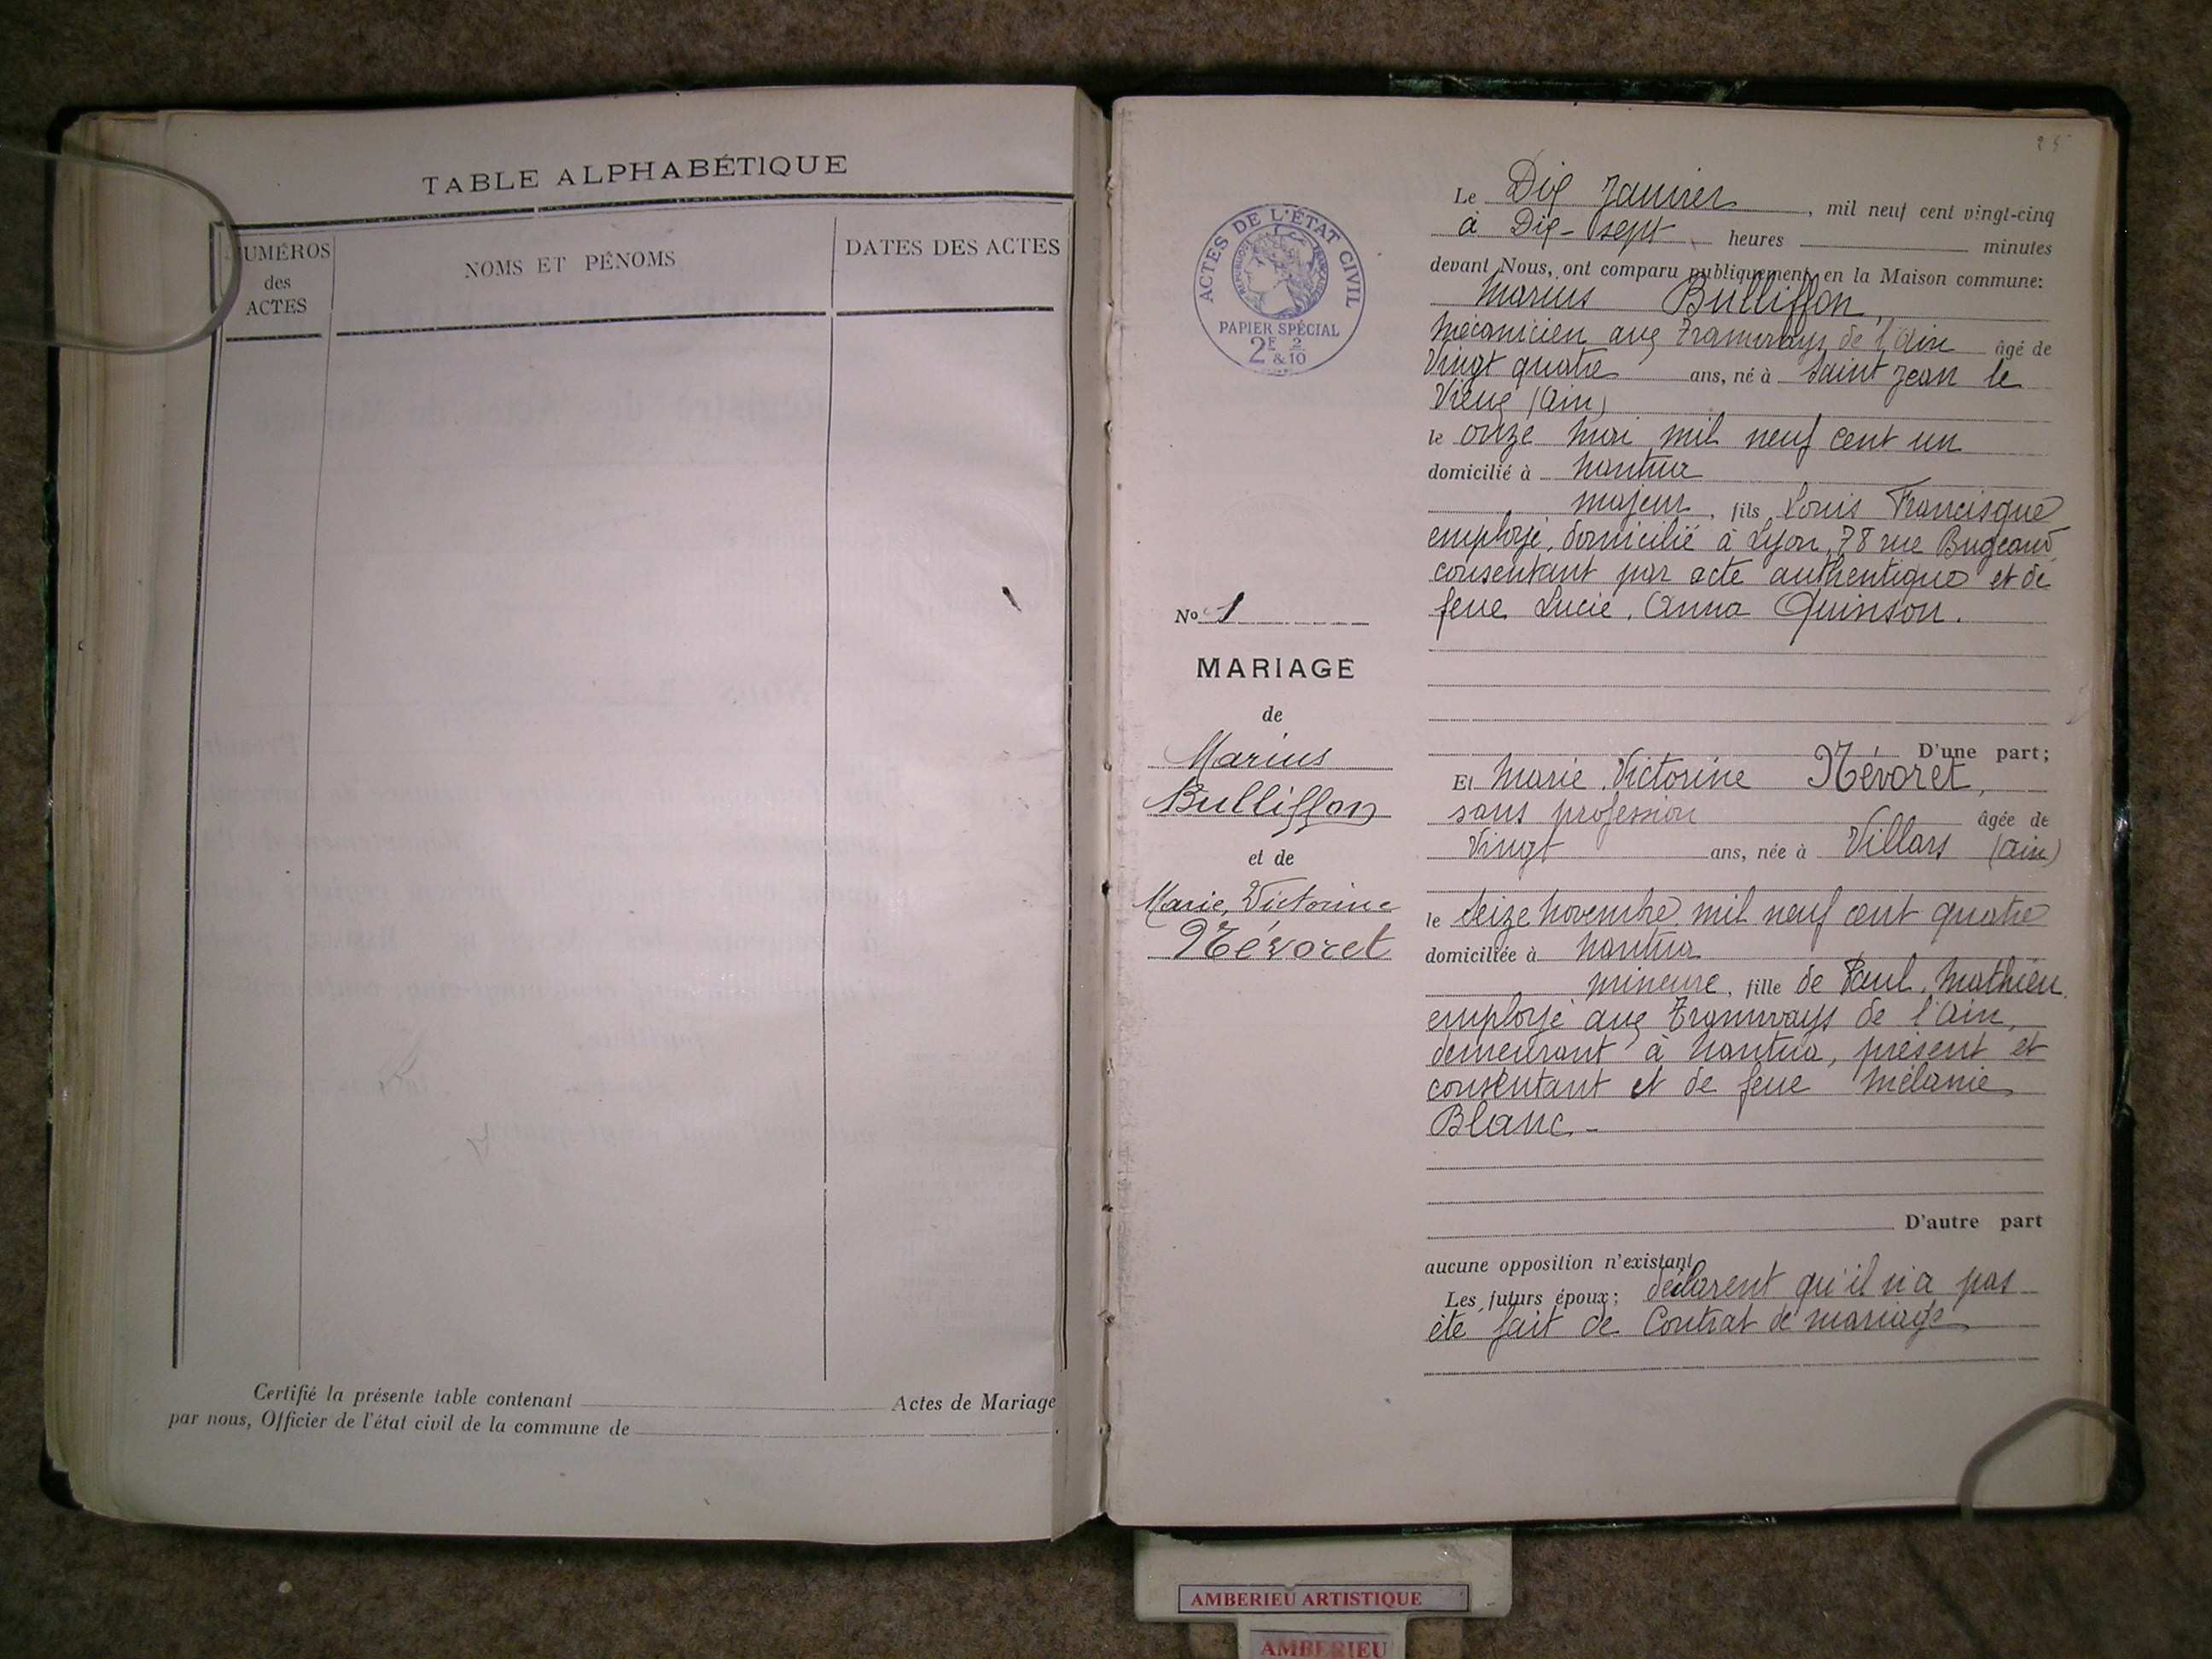 TABLE ALPHABÉTIQUE
NUMÉROS
des
ACTES
NOMS ET PÉNOMS
DATES DES ACTES
Certifié la présente table contenant Actes de Mariage
par nous, Officier de l'état civil de la commune de
ACTES DE L'ÉTAT CIVIL
REPUBLIQUE FRANÇAISE
PAPIER SPÉCIAL
2F 2
& 10
No 1
MARIAGE
de
Marius
Bulliffon
et de
Marie, Victorine
Névoret
Le Dix Janvier, mil neuf cent vingt-cinq
à Dix-sept heures minutes
devant Nous, ont comparu publiquement en la Maison commune:
Marius Bulliffon,
mécanicien aux Tramways de l'Ain âgé de
Vingt quatre ans, né à Saint Jean le
Vieux (Ain)
le onze Mai mil neuf cent un
domicilié à Nantua
majeur, fils Louis Francisque
employé, domicilié à Lyon, 78 rue Bugeaud,
consentant par acte authentique et de
feue Lucie, Anna Quinson.
D'une part;
Et Marie, Victorine Névoret,
sans profession âgée de
Vingt ans, née à Villars (Ain)
le Seize Novembre mil neuf cent quatre
domiciliée à Nantua
mineure, fille de Paul, Mathieu,
employé aux Tramways de l'Ain,
demeurant à Nantua, présent et
consentant et de feue Mélanie
Blanc.-
D'autre part
aucune opposition n'existant
Les futurs époux; déclarent qu'il n'a pas
été fait de Contrat de mariage
AMBERIEU ARTISTIQUE
AMBERIEU